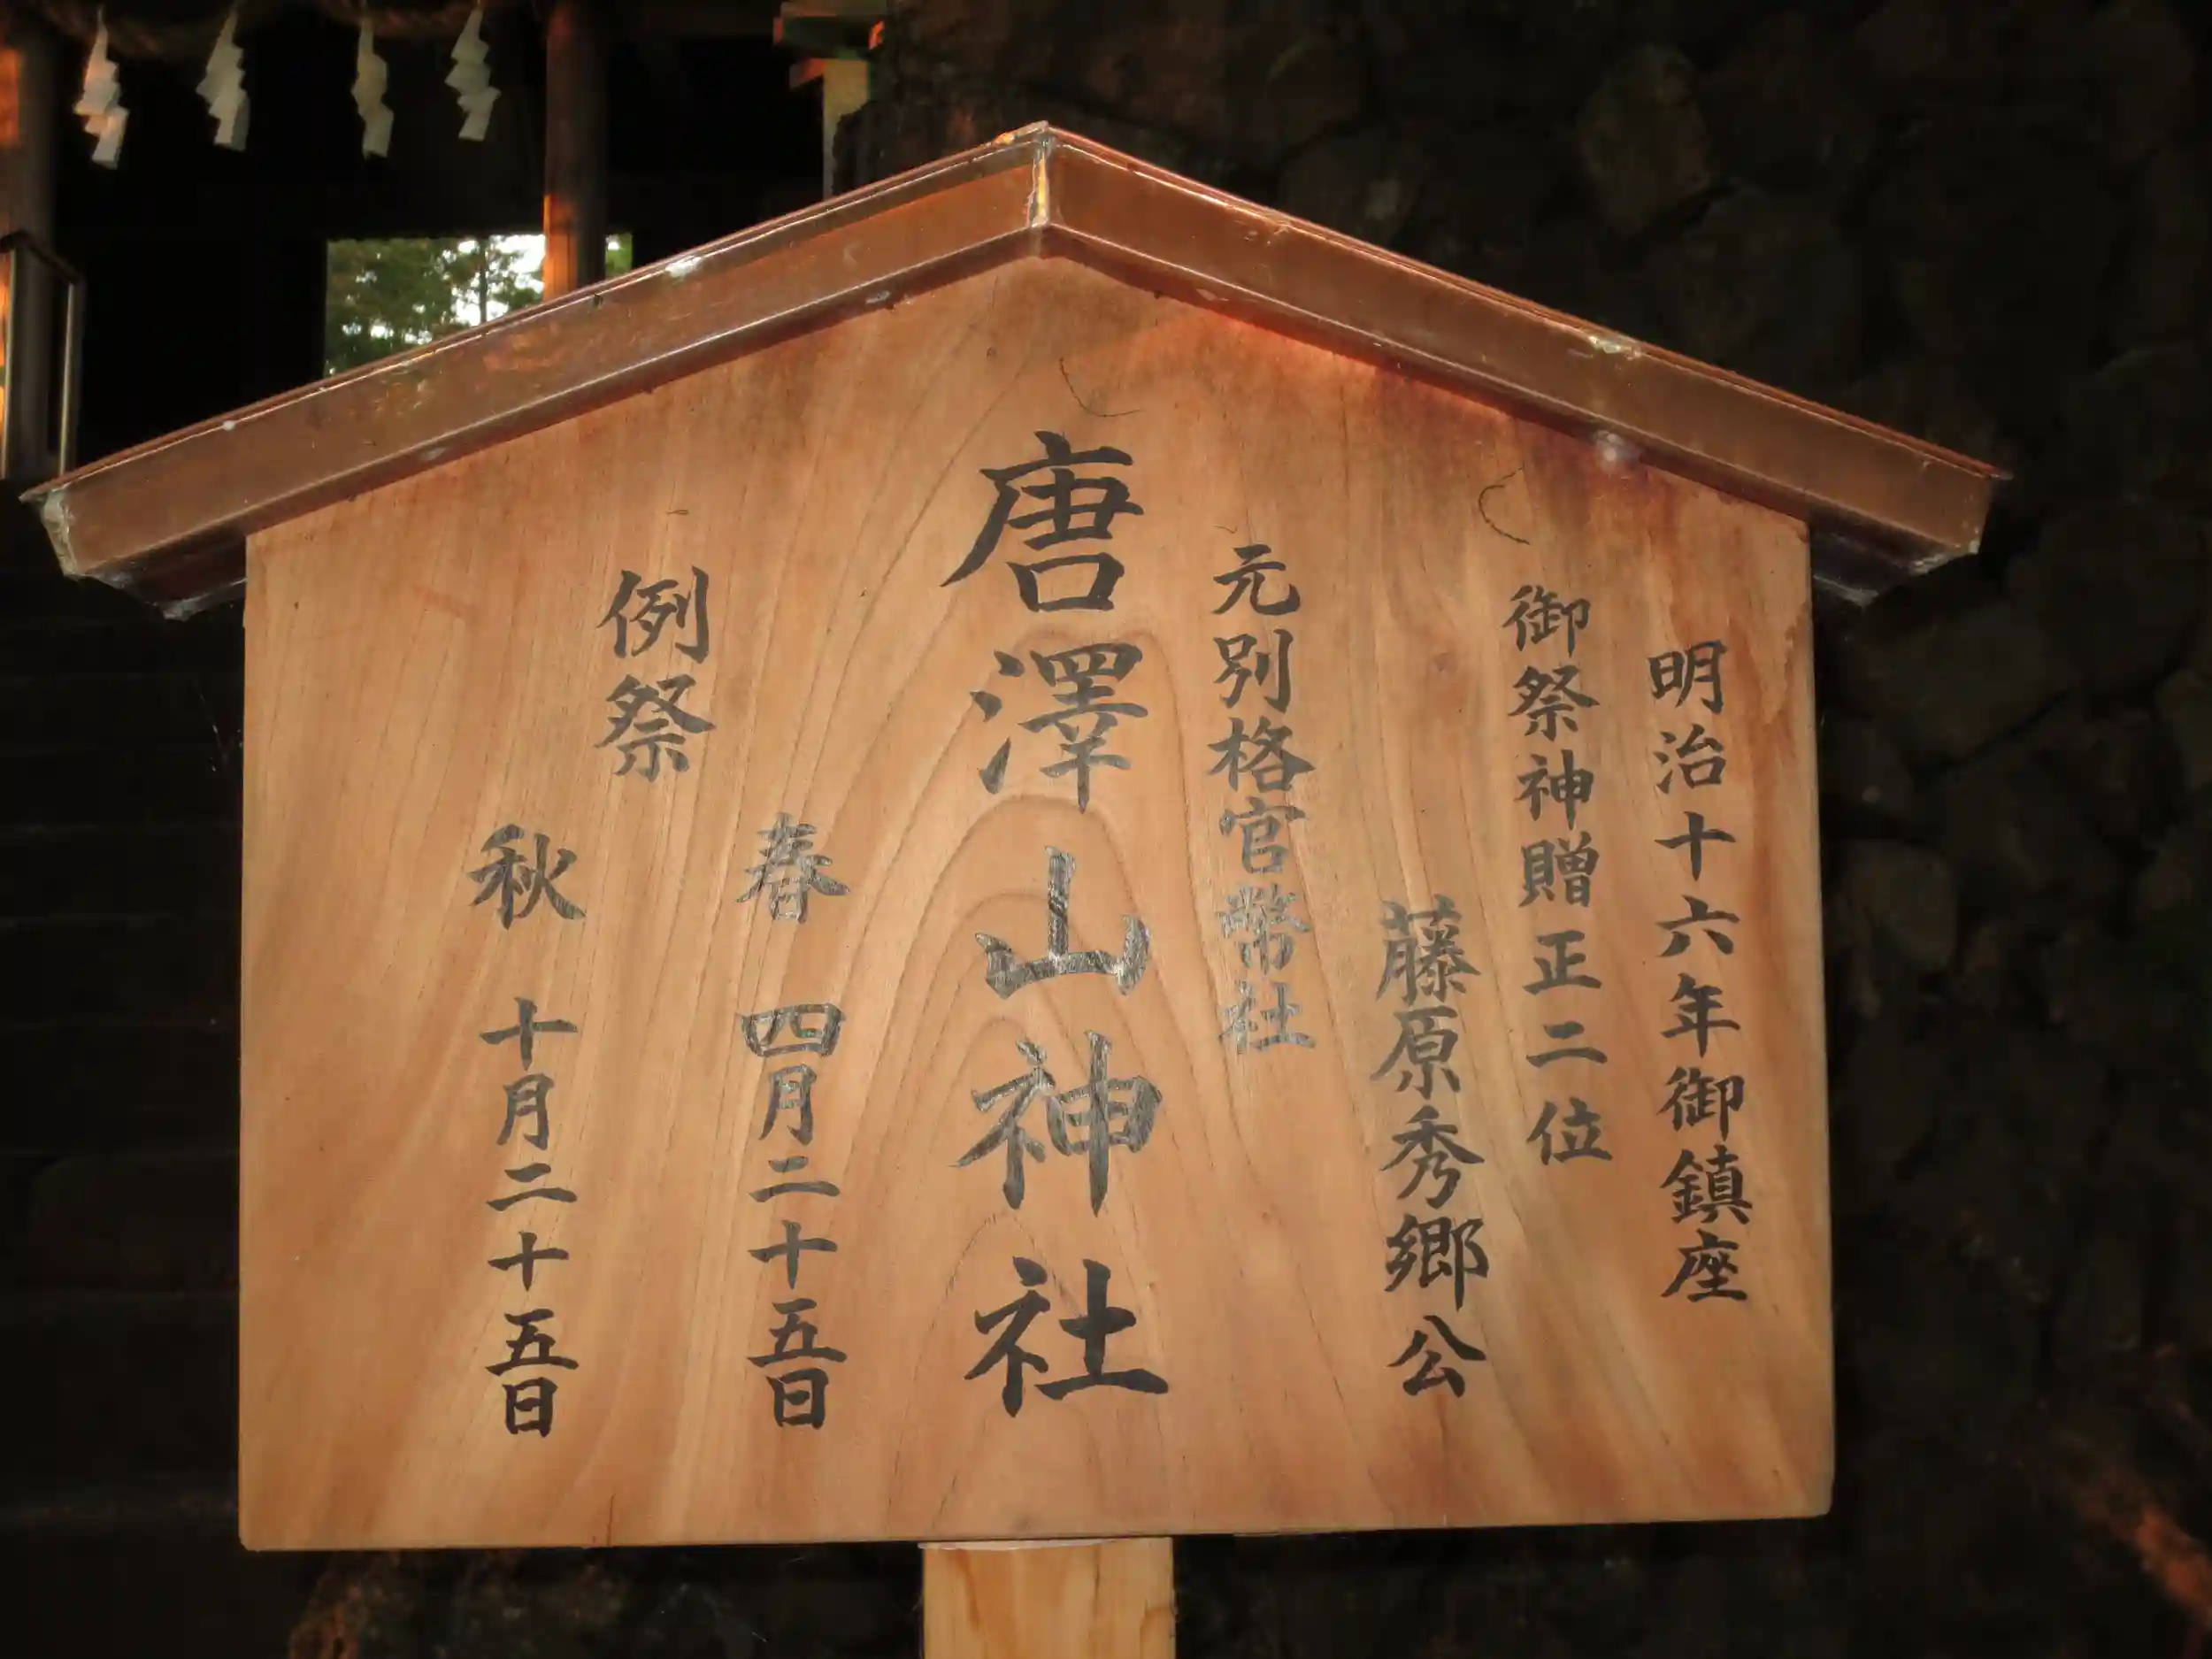 明治十六年御鎮座
御祭神贈正二位
藤原秀郷公
元別格官幣社
唐澤山神社
春 四月二十五日
例祭
秋 十月二十五日